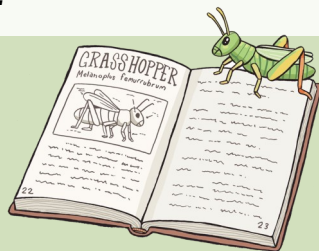 GRASSHOPPER
Melanoplus Femurrubrum
22
23